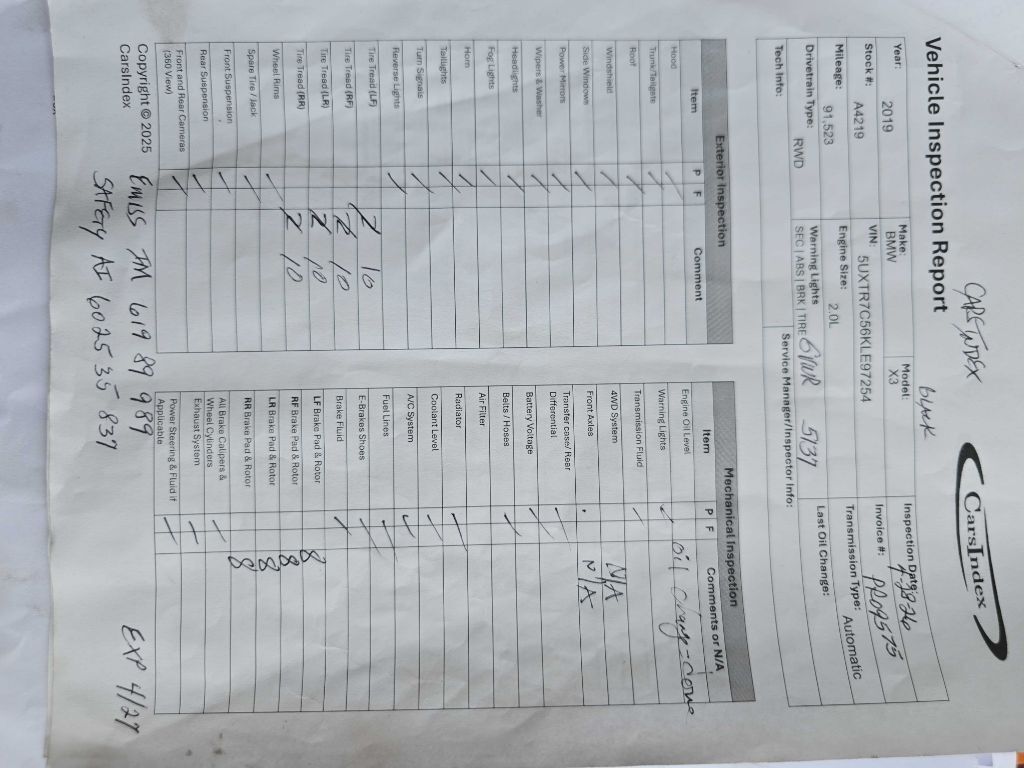 CARSINDEX
black
CARSINDEX
Vehicle Inspection Report
Year: 2019
Make: BMW
Model: X3
Inspection Date:
Stock #: A4219
VIN: 5UXTR7C56KLE97254
Invoice #:
Mileage: 91,523
Engine Size: 2.0L
Transmission Type: Automatic
Drivetrain Type: RWD
Warning Lights
SEC | ABS | BRK | TIRE
5137
Last Oil Change:
Tech Info:
Service Manager/Inspector Info:
Exterior Inspection
Item P F Comment
Hood
Trunk/Tailgate
Roof
Windshield
Side Windows
Power Mirrors
Wipers & Washer
Headlights
Fog Lights
Horn
Taillights
Turn Signals
Reverse Lights
Tire Tread (LF) 10
Tire Tread (RF) 10
Tire Tread (LR) 10
Tire Tread (RR) 10
Wheel Rims
Spare Tire / Jack
Front Suspension
Rear Suspension
Front and Rear Cameras
(360 View)
Mechanical Inspection
Item P F Comments or N/A
Engine Oil Level oil change-
Warning Lights
Transmission Fluid
4WD System N/A
Front Axles N/A
Transfer case/ Rear
Differential
Battery Voltage
Belts / Hoses
Air Filter
Radiator
Coolant Level
A/C System
Fuel Lines
E-Brakes Shoes
Brake Fluid
LF Brake Pad & Rotor 8
RF Brake Pad & Rotor 8
LR Brake Pad & Rotor 8
RR Brake Pad & Rotor 8
All Brake Calipers &
Wheel Cylinders
Exhaust System
Power Steering & Fluid if
Applicable
Copyright © 2025
CarsIndex
EMISS IM 619 89 989
SAFETY AI 602535 837
EXP 4/27